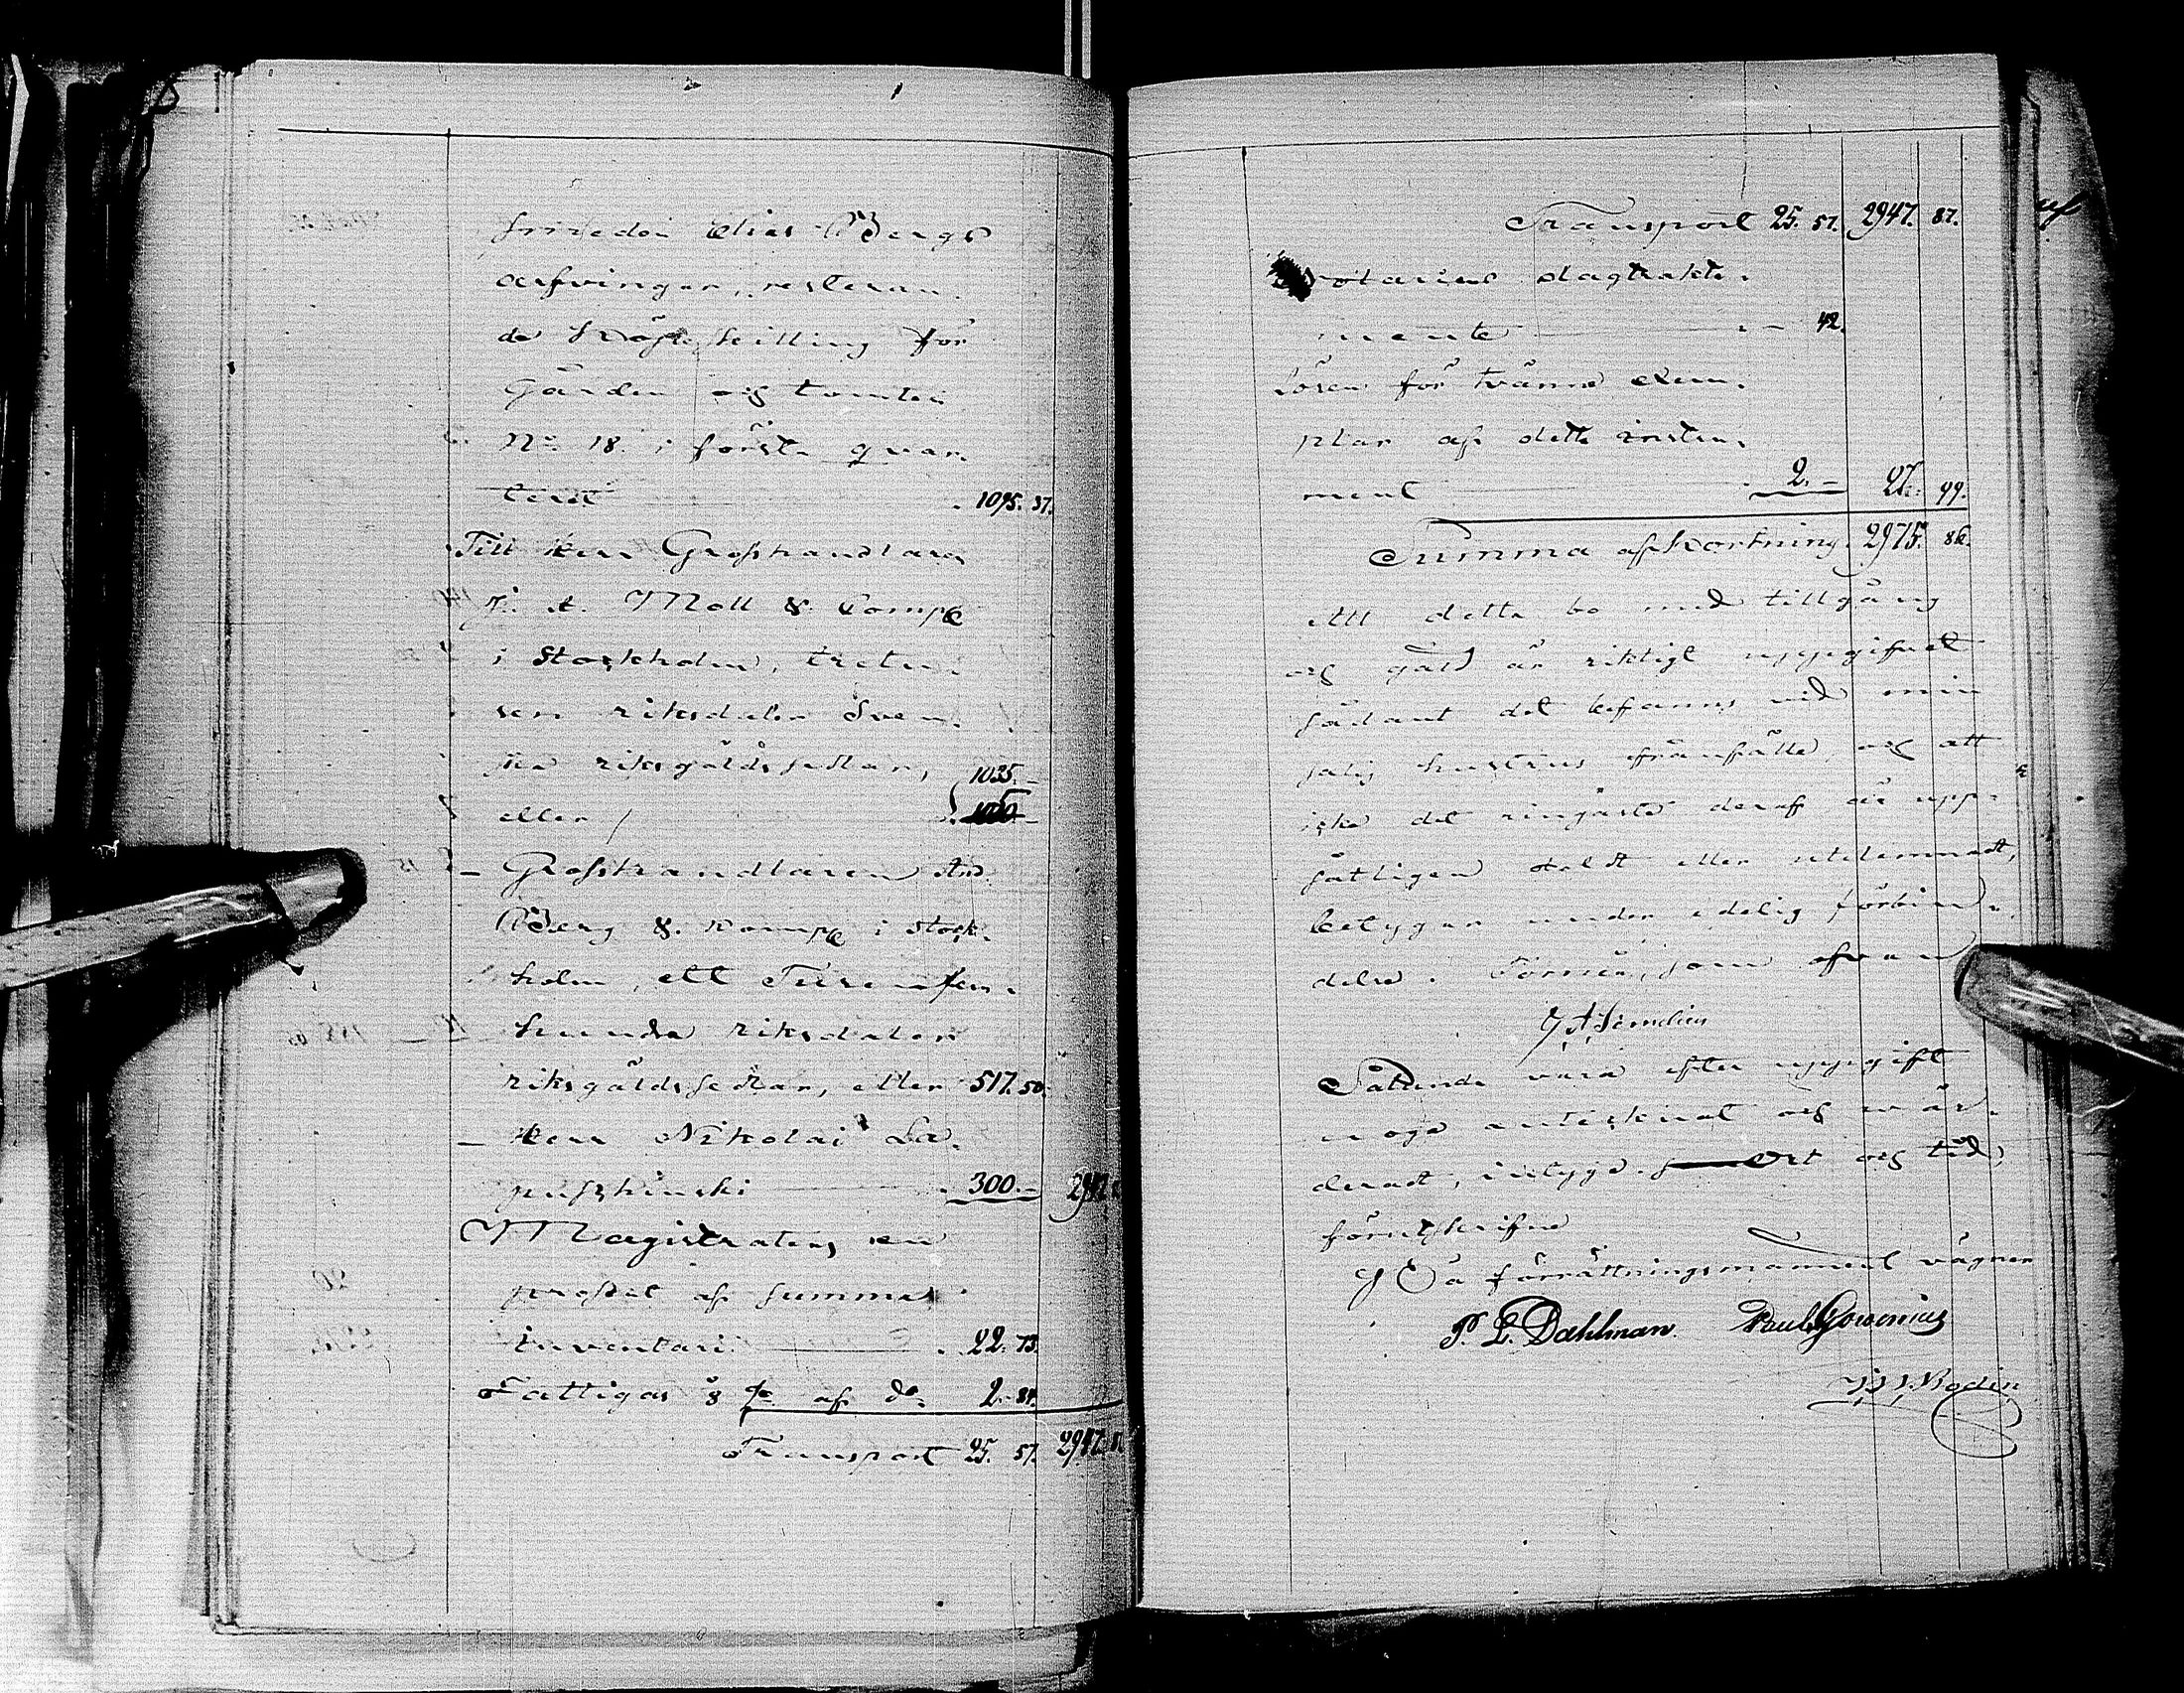 Elias Bergs
arfvingar, resteran
de Köpeskilling för
Gården och tomten
No 18. i första qvar
teret 1095. 37.
Till Herr Grosshandlaren
J. A. Moll & Comp
i Stockholm, ettu
sen riksdaler Sven
ska riksgäldssedlar, 1035. -
eller
- Grosshandlaren And.
Berg & Komp i Stock
holm, ett Tusen fem
hundra riksdaler
riksgäldssedlar, eller 517. 50.
- Herr Nikolai La
puschinski 300. -
Magistratens en
prosent af summa
inventari 22. 73.
Fattigas ⅛ % af do 2. 84.
Transport 25. 57. 2947.
Transport 25. 57. 2947. 87.
Notarius dagtrakta
mente - 42.
Lösen för tvänne exem
plar af detta instru
ment 2. - 27. 99.
Summa afkortning 2975. 86.
Att detta bo med tillgång
och gäld är riktigt uppgifvet
sådant det befanns vid min
salig hustrus frånfälle, och att
icke det ringaste deraf är upp
såtligen doldt eller utelemnadt,
betygar under edelig förbin
delse. Torneå, som ofvan
Sålunda vara efter uppgift
noga antecknat och vär
deradt, intyga. Ort och tid,
förutskrifne
På förrättningsmannens vägnar
P. L. Dahlman. Paul
Bodin